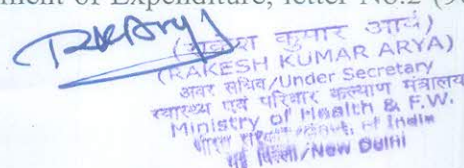 of Expenditure, letter No.2
RKArya
( राकेश कुमार आर्य )
(RAKESH KUMAR ARYA)
अवर सचिव/Under Secretary
स्वास्थ्य एवं परिवार कल्याण मंत्रालय
Ministry of Health & F.W.
भारत सरकार/Govt. of India
नई दिल्ली/New Delhi